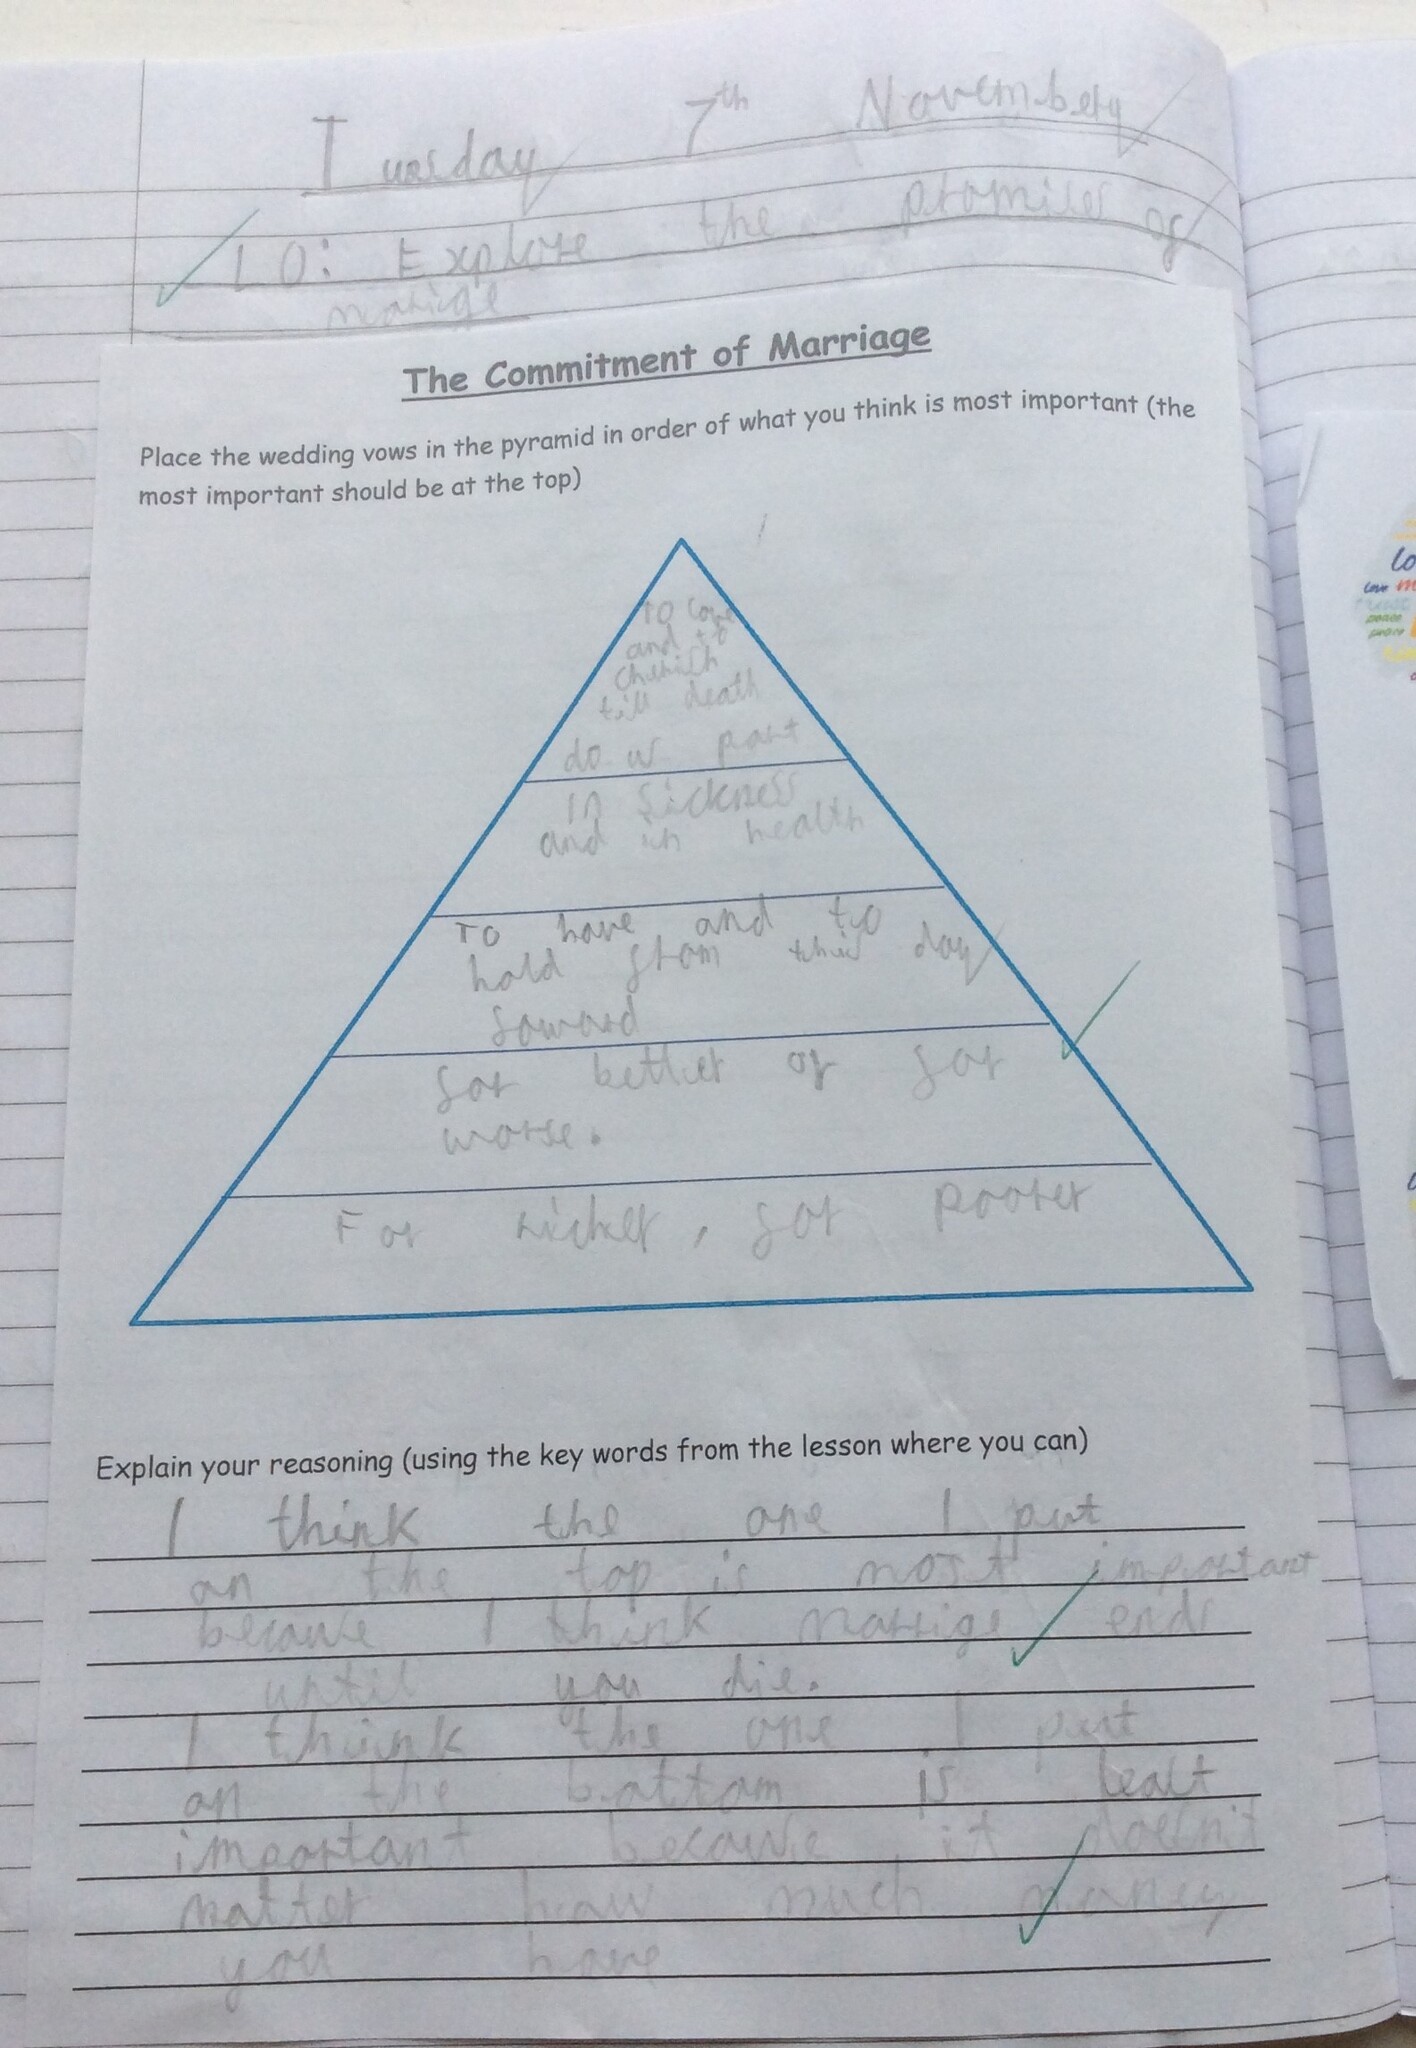 Tuesday 7th November
LO: Explore the promises of
marige
The Commitment of Marriage
Place the wedding vows in the pyramid in order of what you think is most important (the
most important should be at the top)
To love
and to
cherish
till death
do us part
in sickness
and in health
To have and to
hold from this day
foward
for better or for
worse.
For richer, for poorer
Explain your reasoning (using the key words from the lesson where you can)
I think the one I put
on the top is most important
because I think marrige ends
until you die.
I think the one I put
on the bottom is least
important because it doesn't
matter how much money
you have